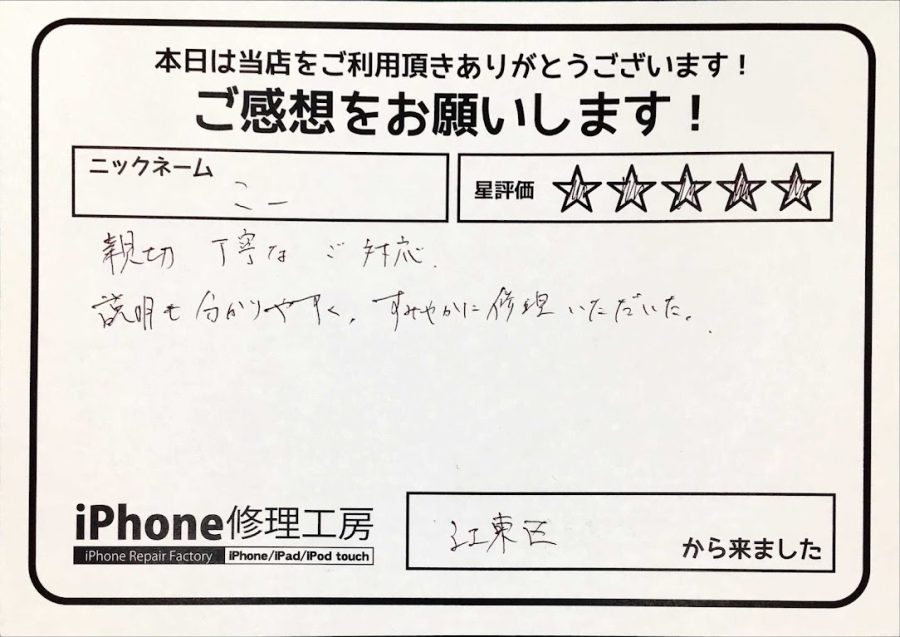 本日は当店をご利用頂きありがとうございます！
ご感想をお願いします！
ニックネーム
こー
星評価
親切 丁寧な ご対応.
説明も分かりやすく, すみやかに修理いただいた。
iPhone修理工房
iPhone Repair Factory iPhone/iPad/iPod touch
江東区
から来ました